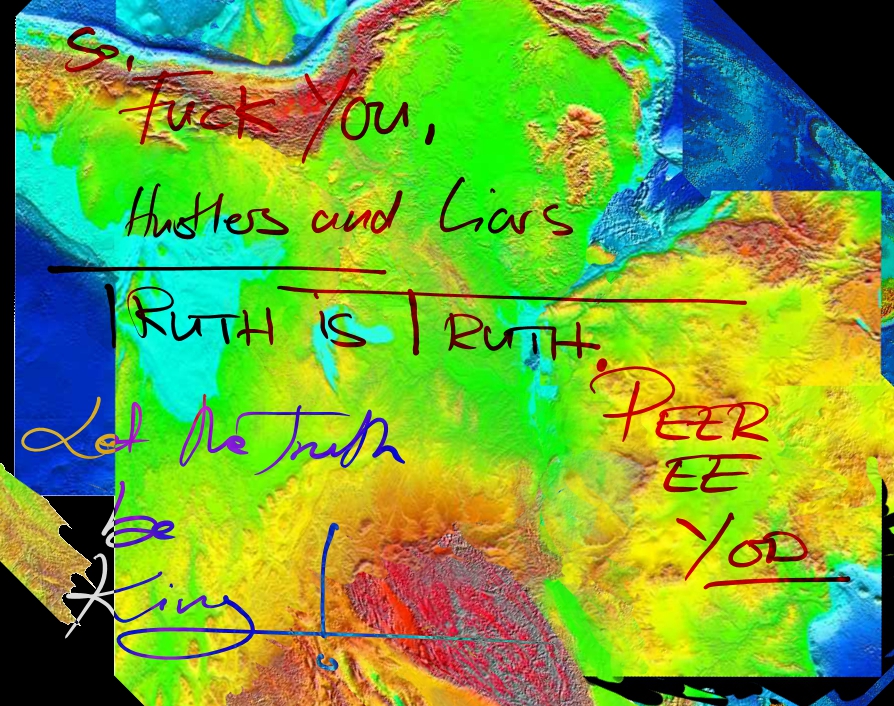 So,
Fuck You,
Hustlers and Liars
TRUTH IS TRUTH.
Let the Truth
be
King!
PEER
EE
YOD